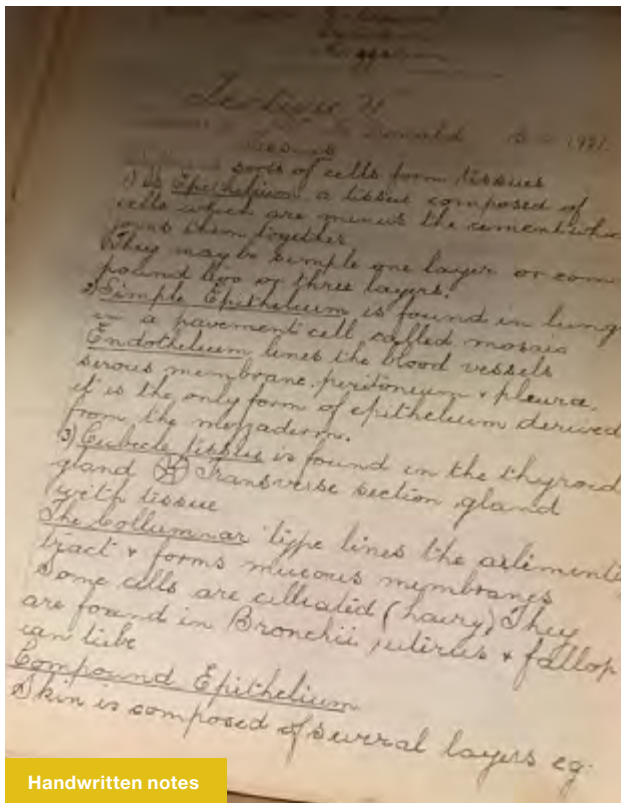 Lecture
Donald
Tissues
sorts of cells form tissues
1) is Epithelium a tissue composed of
cells which are minus the cement whic
joins them together
They may be simple one layer or com
pound two or three layers.
2) Simple Epithelium is found in lung
in a pavement cell called mosaic
Endothelium lines the blood vessels
serous membrane, peritoneum + pleura,
it is the only form of epithelium derived
from the
3) Cubicle tissue is found in the thyroid
gland Transverse section gland
with tissue
The Collumnar type lines the
tract + forms mucous membranes
Some cells are cilliated (hairy) They
are found in Bronchii, uterus + fallop
ian tube
Compound Epithelium
Skin is composed of several layers eg.
Handwritten notes